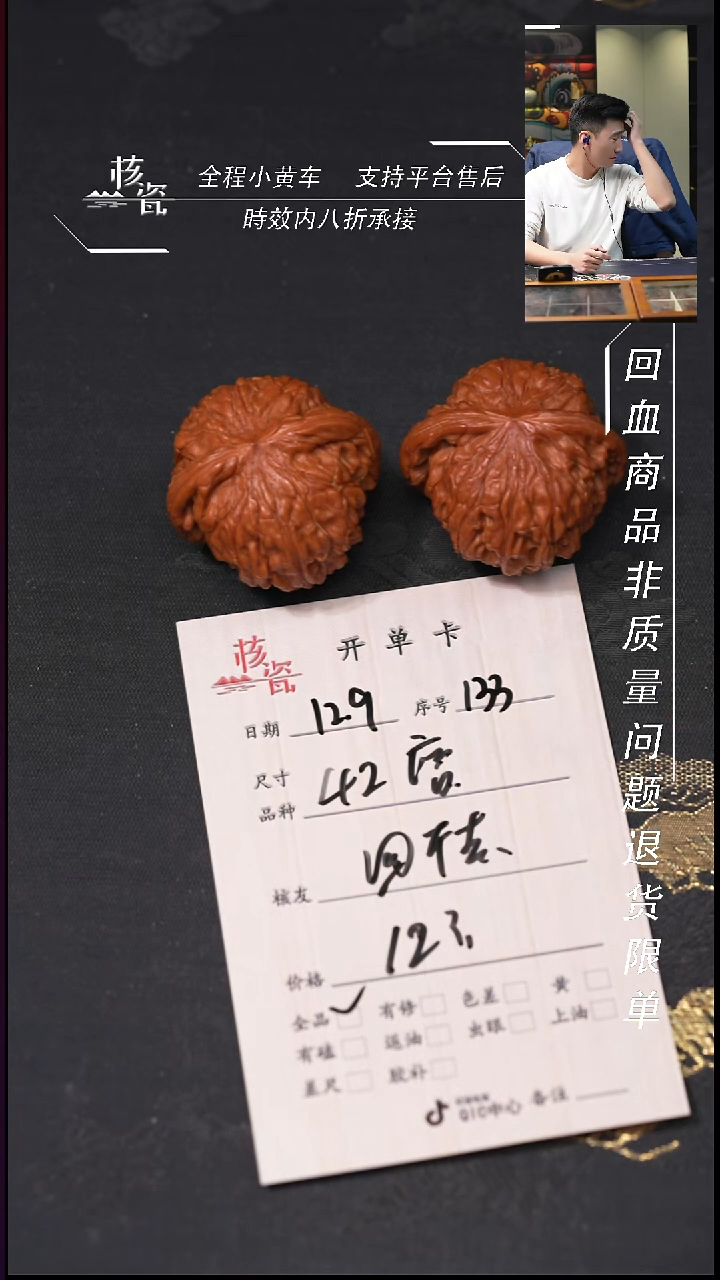 核瓷
全程小黄车 支持平台售后
時效内八折承接
回血商品非质量问题退货限单
核瓷
开单卡
日期 12.9 序号 133
尺寸 42
品种
核友
价格
全品 ✓ 有修 色差 黄
有磕 返油 虫眼 上油
差尺 胶补
QIC中心 备注